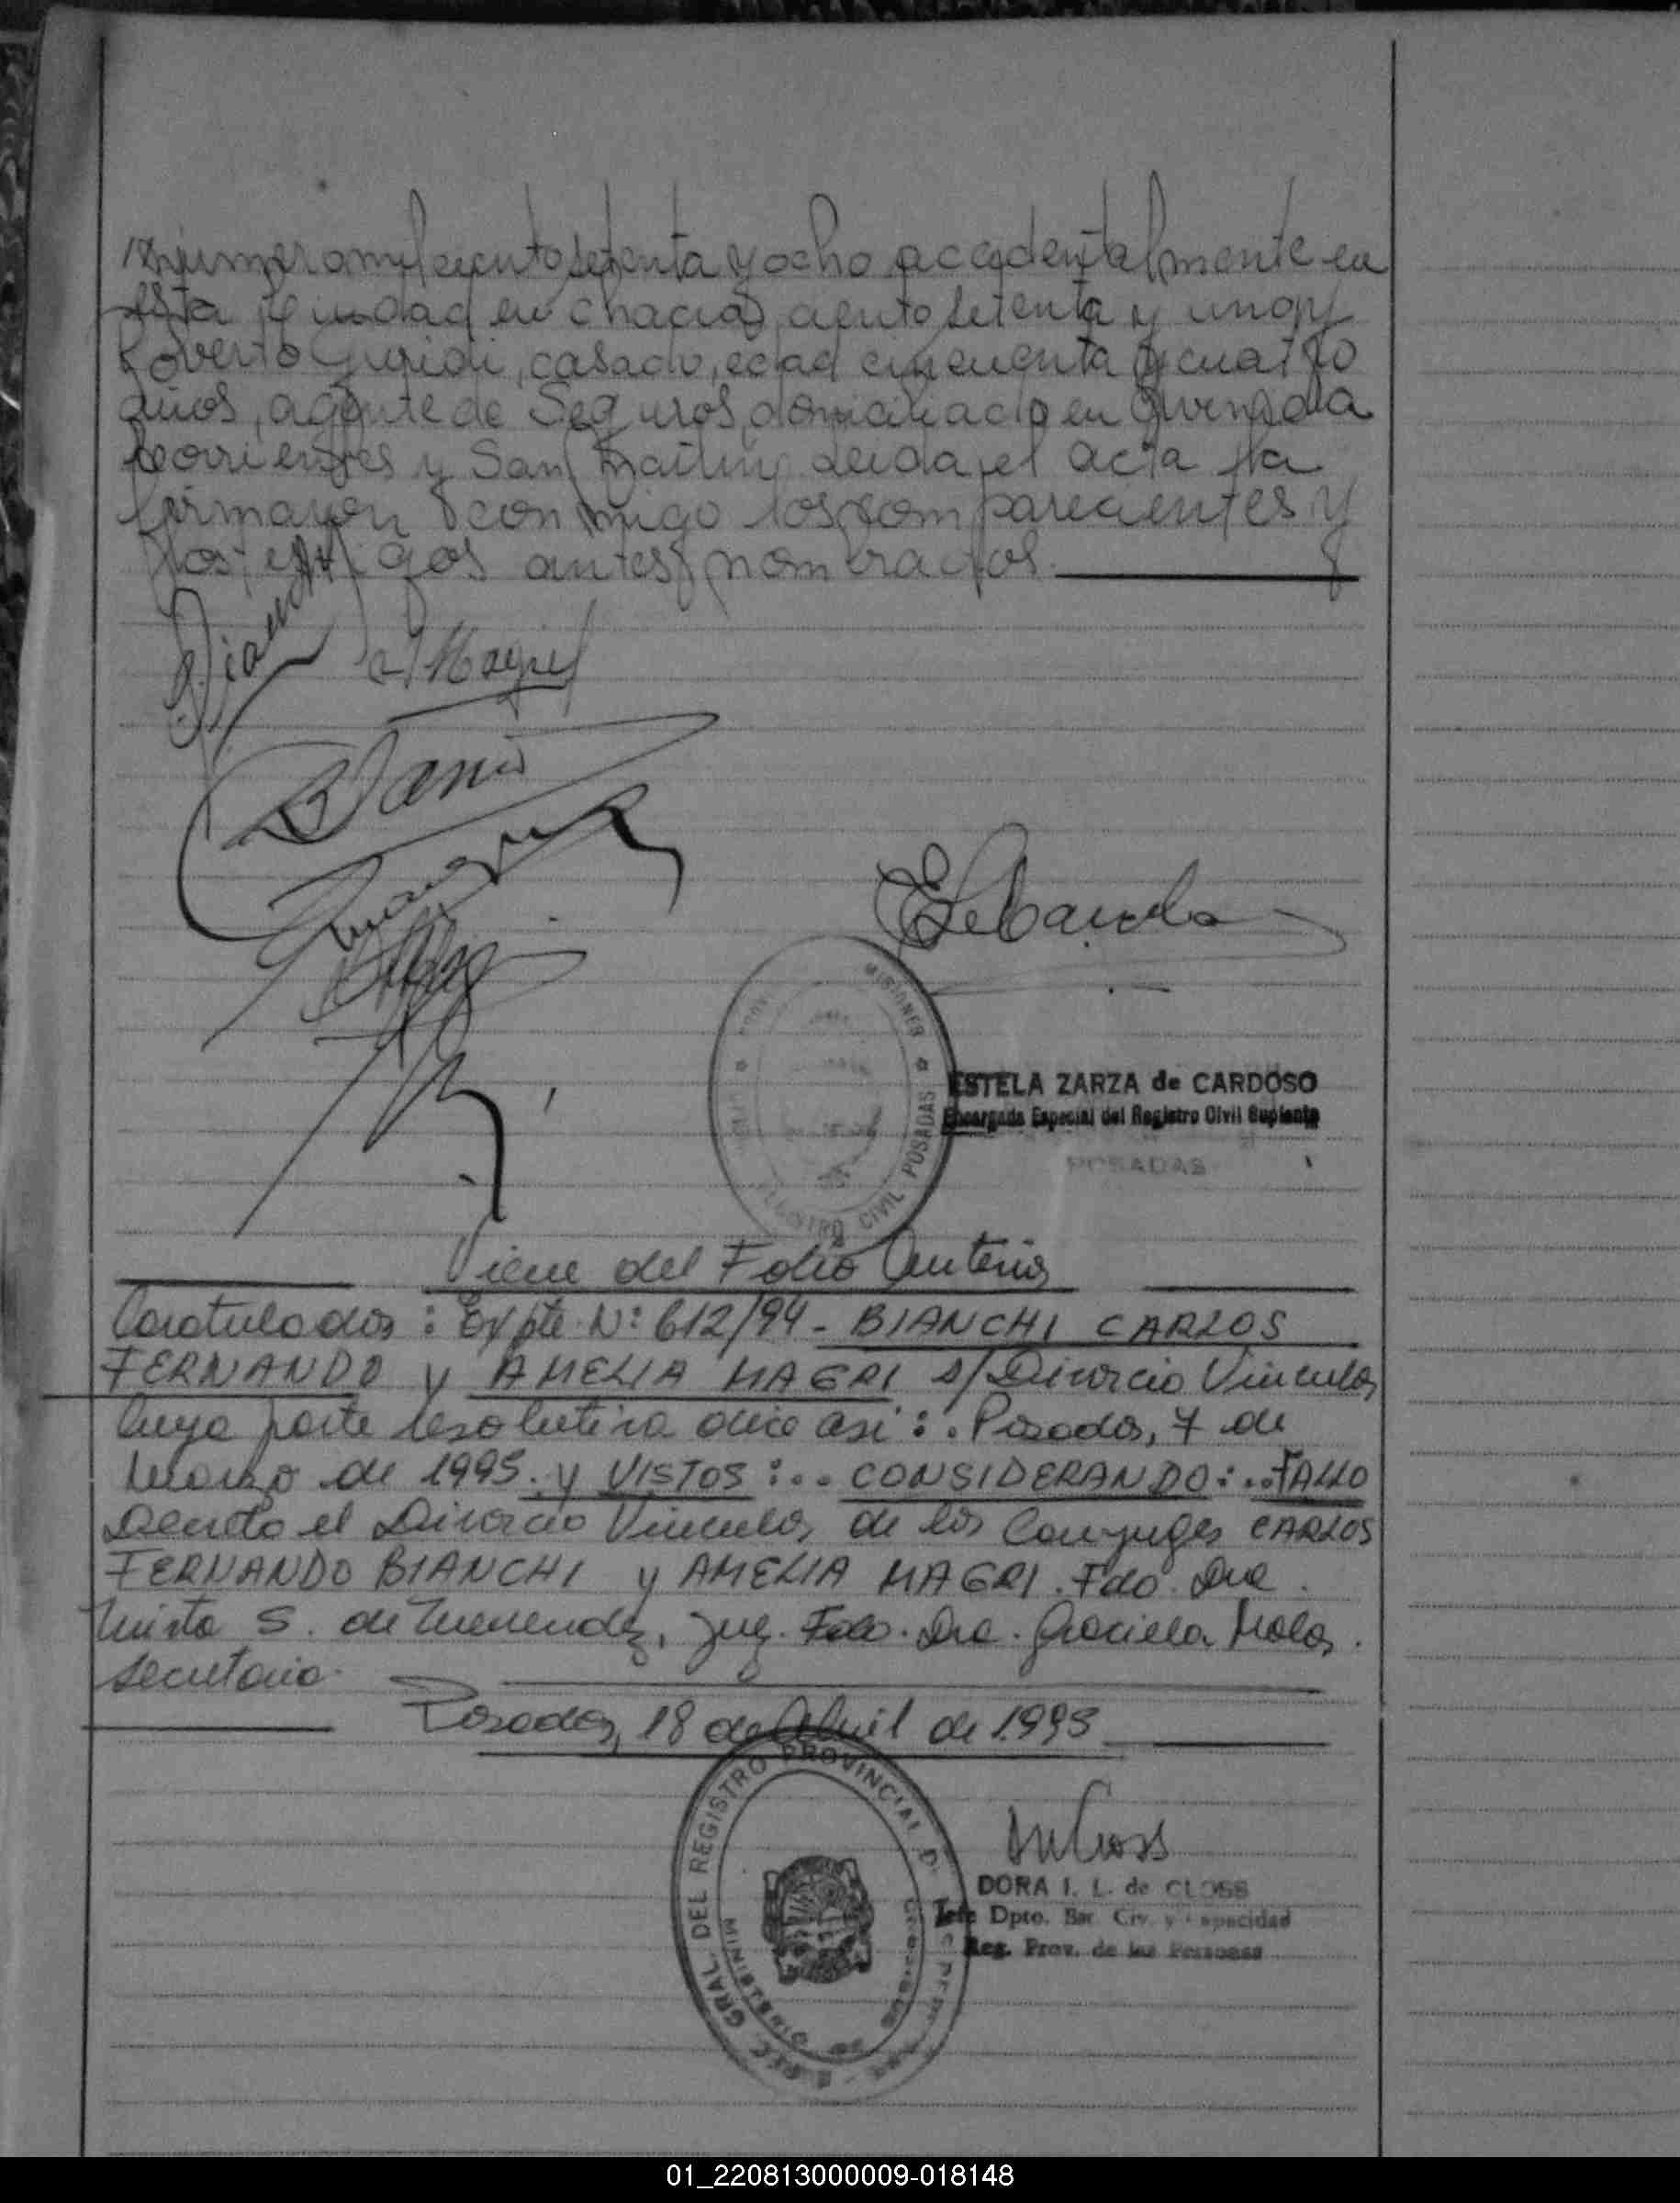 número mil ciento setenta y ocho accidentalmente en
esta ciudad en chacra ciento setenta y uno y
Roberto casado, edad cincuenta y cuatro
años, agente de Seguros, domiciliado en Avenida
Corrientes y San Martin Leida el acta la
firmaron conmigo los comparecientes y
los testigos antes nombrados.
Bianchi
A Magri
ESTELA ZARZA de CARDOSO
Encargada Especial del Registro Civil Suplente
POSADAS
MISIONES
REGISTRO CIVIL POSADAS
Viene del Folio Anterior
Caratulados: Expte. N: 612/94 - BIANCHI CARLOS
FERNANDO y AMELIA MAGRI s/ Divorcio Vincular
Cuya parte resolutiva dice asi: . Posadas, 7 de
Marzo de 1995. y VISTOS:.. CONSIDERANDO:..FALLO
Decreto el Divorcio Vincular de los Conyuges CARLOS
FERNANDO BIANCHI y AMELIA MAGRI. Fdo. Dra.
Mirta S. de Menendez, Juez. Fdo. Dra. Graciela
Secretaria.
Posadas, 18 de Abril de 1.995
GRAL. DEL REGISTRO PROVINCIAL D
MINISTERIO DE
DORA I. L. de CLOSS
Jefe Dpto. Civ. y Capacidad
Reg. Prov. de las Personas
01_220813000009-018148